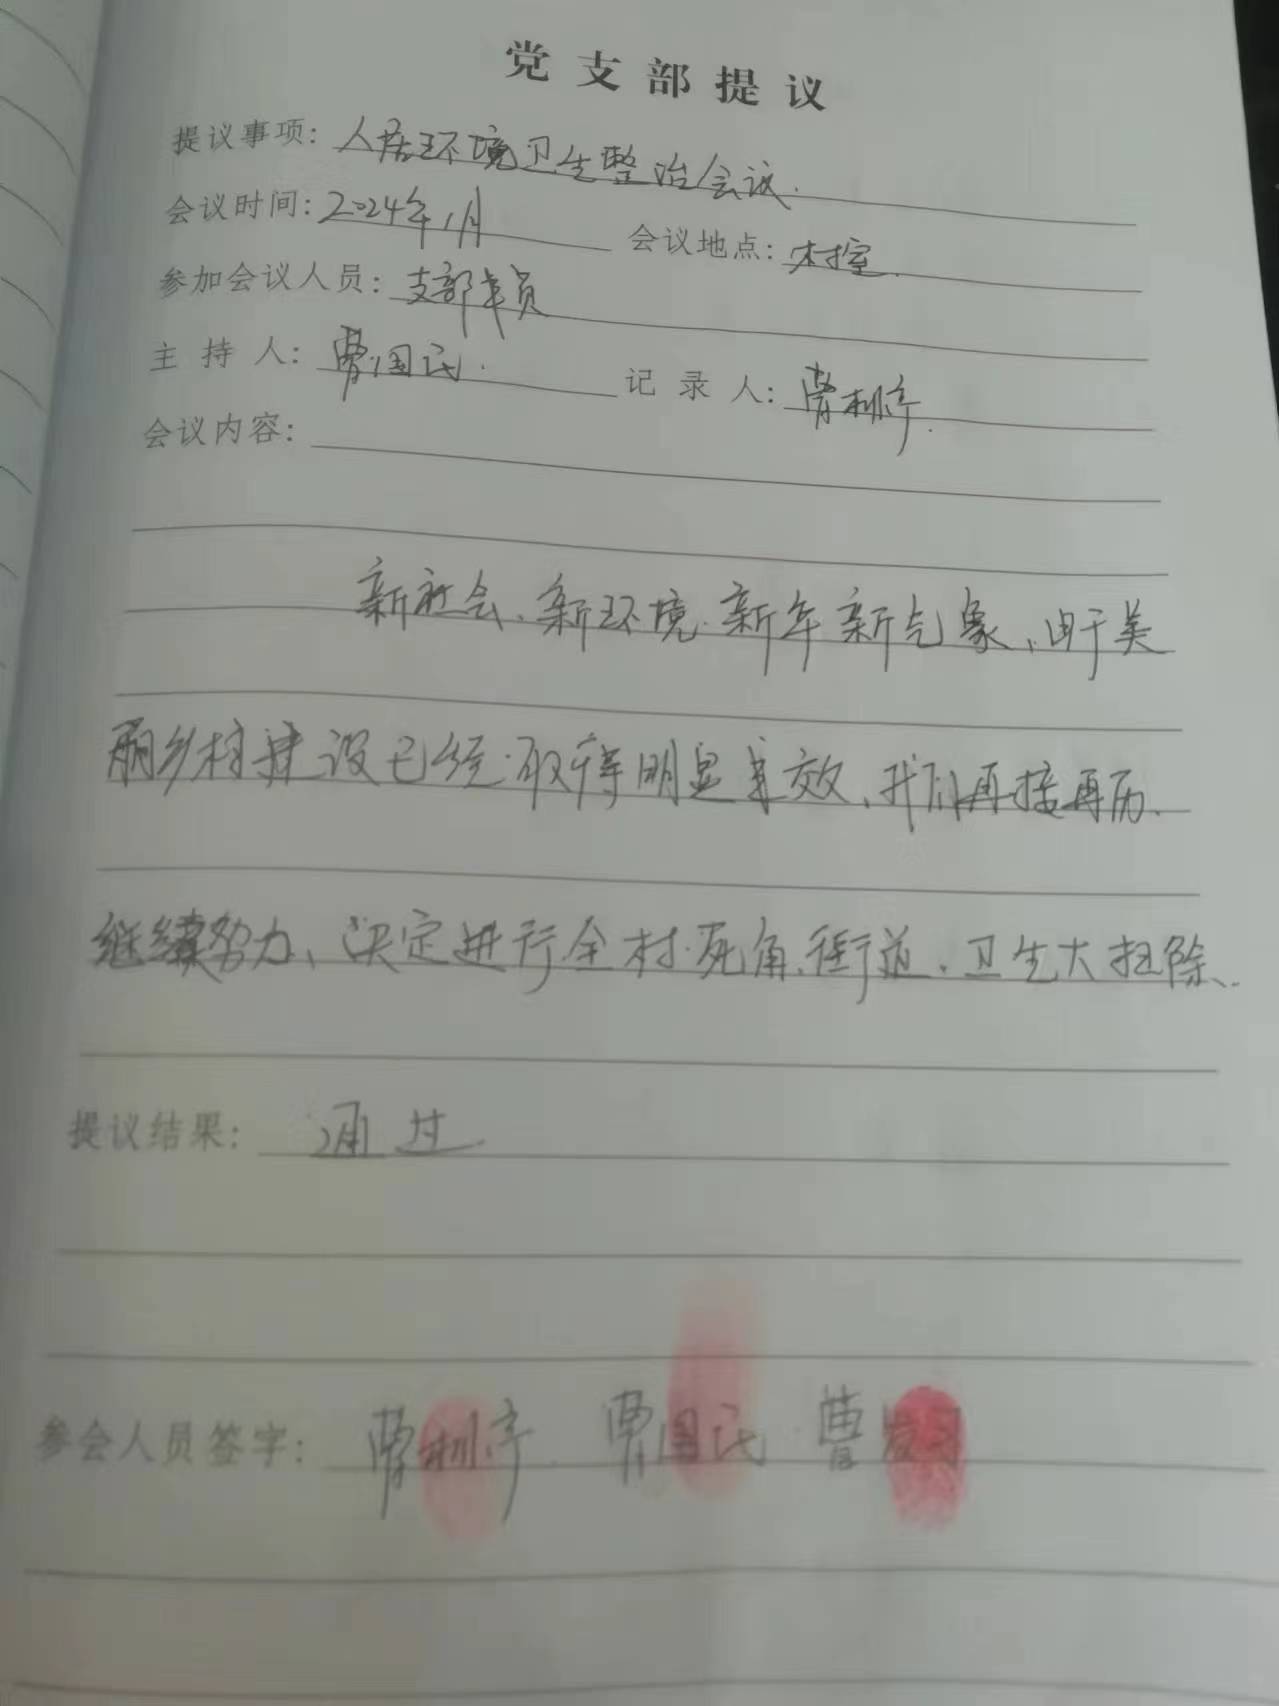 党支部提议
提议事项：人居环境卫生整治会议.
会议时间：2024年1月 会议地点：村室.
参加会议人员：支部党员
主持人：曹国民. 记录人：曹
会议内容：
新社会、新环境.新年新气象、由于美
丽乡村建设已经.取得明显成效、我们再接再历.
继续努力、决定进行全村.死角.街道.卫生大扫除、.
提议结果：通过.
参会人员签字：曹 曹国民 曹